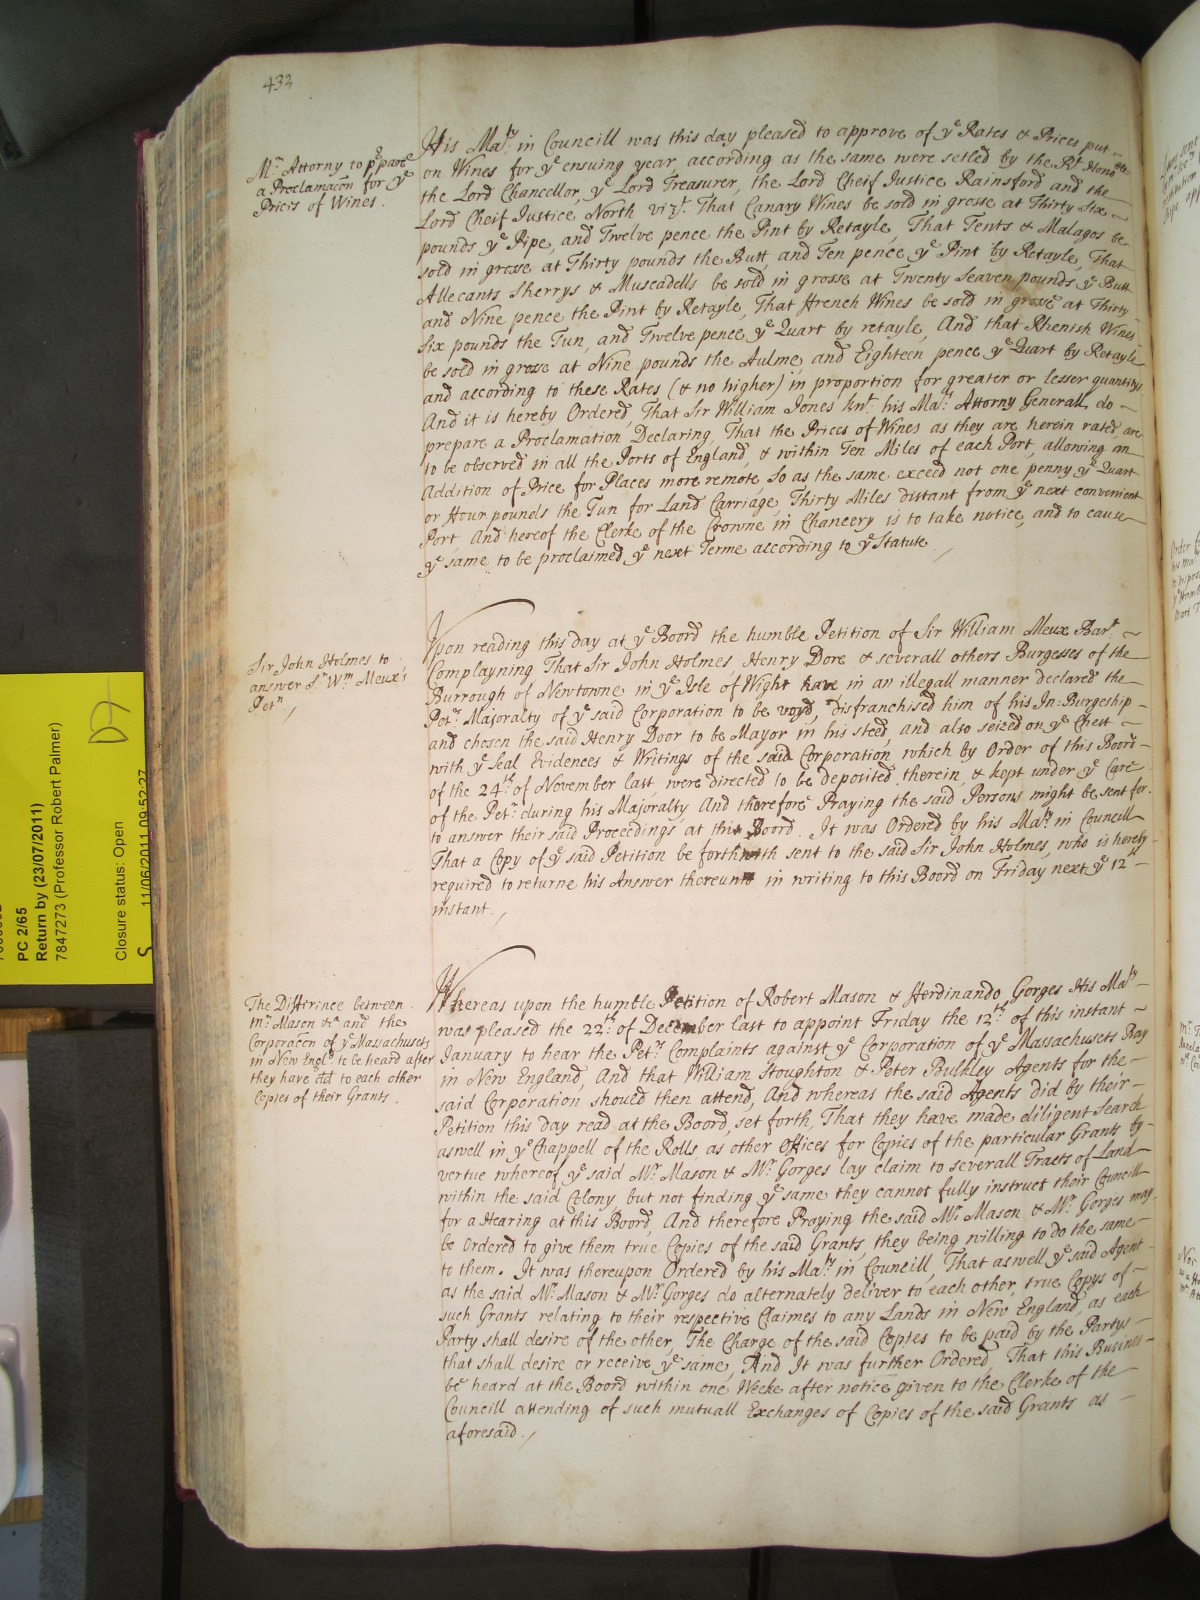 432
Mr. Attorny to p̃pare
a Proclamac̃on for ye
Prices of Wines.
His Maty. in Councill was this day pleased to approve of ye Rates & Prices put
on Wines for ye ensuing year, according as the same were setled by the Rt. Honoble
the Lord Chancellor, ye Lord Treasurer, the Lord Cheif Justice Rainsford and the
Lord Cheif Justice North vizt. That Canary Wines be sold in grosse at Thirty Six
pounds ye Pipe, and Twelve pence the Pint by Retayle, That Tents & Malagos be
sold in grosse at Thirty pounds the Butt, and Ten pence ye Pint by Retayle, That
Allecants Sherrys & Muscadells be sold in grosse at Twenty Seaven pounds ye Butt
and Nine pence the Pint by Retayle, That French Wines be sold in grosse at Thirty
Six pounds the Tun, and Twelve pence ye Quart by retayle, And that Rhenish Wines
be sold in grosse at Nine pounds the Aulme, and Eighteen pence ye Quart by Retayle
and according to these Rates (& no higher) in proportion for greater or lesser quantitys
And it is hereby Ordered, That Sir William Jones knt. his Mats. Attorny Generall, do
prepare a Proclamation, Declaring, That the Prices of Wines as they are herein rated, are
to be observed in all the Ports of England, & within Ten Miles of each Port, allowing an
Addition of Price for Places more remote, So as the same exceed not one penny ye Quart
or Four pounds the Tun for Land Carriage, Thirty Miles distant from ye next convenient
Port And hereof the Clerke of the Crowne in Chancery is to take notice, and to cause
ye same to be proclaimed ye next Terme according to ye Statute
Sir John Holmes to
answer Sr. Wm. Meux's
Petn.
Upon reading this day at ye Board the humble Petition of Sir William Meux Bart.
Complayning, That Sir John Holmes, Henry Dore & severall others Burgesses of the
Burrough of Newtowne in ye Isle of Wight have in an illegall manner declared the
Petrs. Majoralty of ye said Corporation to be voyd, disfranchised him of his In-Burgeship
and chosen the said Henry Door to be Mayor in his steed, and also seized on ye Chest
with ye Seal Evidences & Writings of the said Corporation, which by Order of this Board
of the 24th. of November last, were directed to be deposited therein, & kept under ye Care
of the Petr. during his Majoralty And therefore Praying the said Persons might be sent for
to answer their said Proceedings at this Board. It was Ordered by his Maty. in Councill
That a Copy of ye said Petition be forthwith sent to the said Sir John Holmes, who is hereby
required to returne his Answer thereunto in writing to this Board on Friday next ye 12th
instant.
The Differince between
Mr. Mason &c and the
Corporac̃on of ye Massachusets
in New Engld. to be heard after
they have dd to each other
Copies of their Grants.
Whereas upon the humble Petition of Robert Mason & Ferdinando Gorges His Maty.
was pleased the 22th. of December last to appoint Friday the 12th. of this instant
January to hear the Petrs. Complaints against ye Corporation of ye Massachusets Bay
in New England, And that William Stoughton & Peter Bulkley Agents for the
said Corporation should then attend, And whereas the said Agents did by their
Petition this day read at the Board, set forth, That they have made diligent Search
aswell in ye Chappell of the Rolls, as other Offices for Copies of the particular Grants by
vertue whereof ye said Mr. Mason & Mr. Gorges lay claim to severall Tracts of Land
within the said Colony, but not finding ye same, they cannot fully instruct their Councill
for a Hearing at this Board, And therefore Praying the said Mr. Mason & Mr. Gorges may
be Ordered to give them true Copies of the said Grants, they being willing to do the same
to them. It was thereupon Ordered by his Maty. in Councill, That aswell ye said Agent
as the said Mr. Mason & Mr. Gorges do alternately deliver to each other, true Copys of
such Grants relating to their respective Claimes to any Lands in New England, as each
Party shall desire of the other, The Charge of the said Copies to be paid by the Partys
that shall desire or receive ye same, And It was further Ordered, That this Business
be heard at the Board within one Weeke after notice given to the Clerke of the
Councill attending of such mutuall Exchanges of Copies of the said Grants as
aforesaid.
PC 2/65
Return by (23/07/2011)
7847273 (Professor Robert Palmer)
Closure status: Open
S 11/06/2011 09:52:27